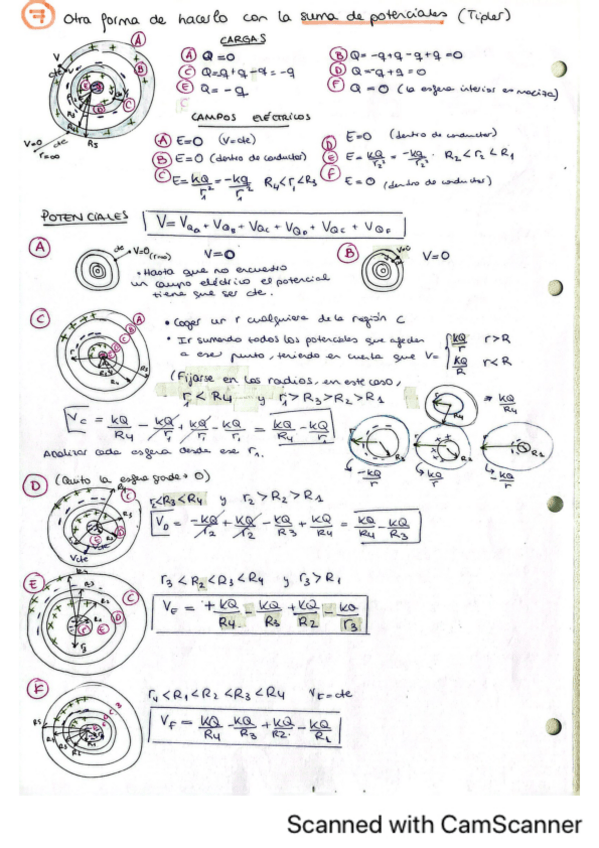 7 Otra forma de hacerlo con la suma de potenciales (Tipler)
CARGAS
A Q=0
B Q=-q+q-q+q=0
C Q=q+q-q=-q
D Q=-q+q=0
E Q=-q
F Q=0 (la esfera interior es maciza)
CAMPOS ELÉCTRICOS
A E=0 (V=cte)
D E=0 (dentro de conductor)
B E=0 (dentro de conductor)
E E=kQ/r₂²=-kq/r₂² R₂<r₂<R₁
C E=kQ/r₁²=-kq/r₁² R₄<r₁<R₃
F E=0 (dentro de conductor)
V=0
r=∞
POTENCIALES
V=V_QA+V_QB+V_QC+V_QD+V_QC+V_QF
A cte V=0 (r=∞)
V=0
• Hasta que no encuentro
un campo eléctrico el potencial
tiene que ser cte.
B V=0
V=0
C • Coger un r cualquiera de la región C
• Ir sumando todos los potenciales que afectan
a ese punto, teniendo en cuenta que V= { kQ/r r>R
kQ/R r<R
(Fijarse en los radios, en este caso,
r₁<R₄ y r₁>R₃>R₂>R₁
V_C = kQ/R₄ - kQ/r₁ + kQ/r₁ - kQ/r₁ = kQ/R₄ - kQ/r₁
⇒ kQ/R₄
-kQ/r
kQ/r
-kQ/r
Analizar cada esfera desde ese r₁.
D (Quito la esfera grande → 0)
r₂<R₃<R₄ y r₂>R₂>R₁
V_D = -kQ/r₂ + kQ/r₂ - kQ/R₃ + kQ/R₄ = kQ/R₄ - kQ/R₃
E r₃<R₂<R₃<R₄ y r₃>R₁
V_E = +kQ/R₄ - kQ/R₃ + kQ/R₂ - kQ/r₃
F r₄<R₁<R₂<R₃<R₄ V_F=cte
V_F = kQ/R₄ - kQ/R₃ + kQ/R₂ - kQ/R₁
Scanned with CamScanner